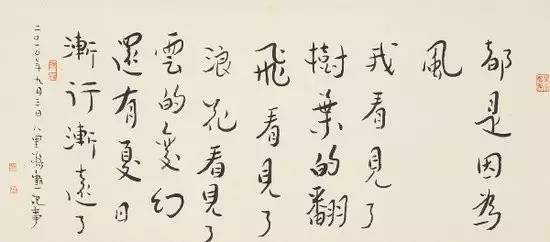 都是因為
風
我看見了
樹葉的翻
飛看見了
浪花看見了
雲的變幻
還有夏日
漸行漸遠了
二〇一〇年九月三日八里蔣勳記事